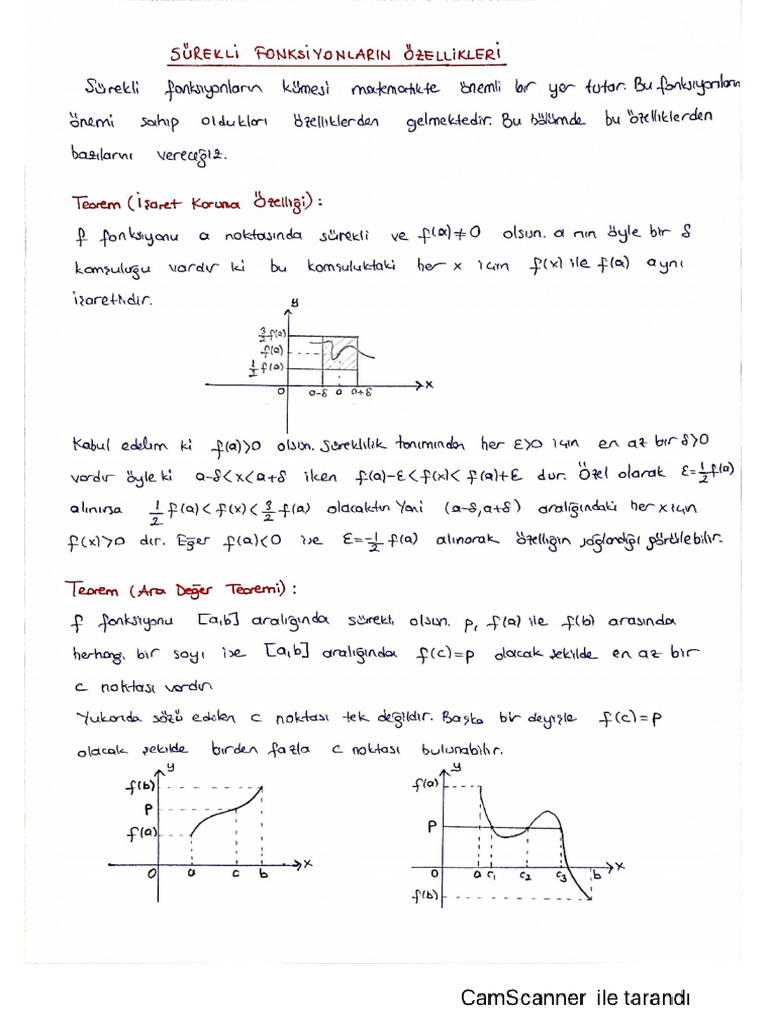 SÜREKLİ FONKSİYONLARIN ÖZELLİKLERİ
Sürekli fonksiyonların kümesi matematikte önemli bir yer tutar. Bu fonksiyonların
önemi sahip oldukları özelliklerden gelmektedir. Bu bölümde bu özelliklerden
bazılarını vereceğiz.
Teorem (İşaret Koruma Özelliği) :
f fonksiyonu a noktasında sürekli ve f(a)≠0 olsun. a nın öyle bir δ
komşuluğu vardır ki bu komşuluktaki her x için f(x) ile f(a) aynı
işaretlidir.
y
3/2 f(a)
f(a)
1/2 f(a)
0 a-δ a a+δ x
Kabul edelim ki f(a)>0 olsun. Süreklilik tanımından her ε>0 için en az bir δ>0
vardır öyle ki a-δ<x<a+δ iken f(a)-ε<f(x)<f(a)+ε dur. Özel olarak ε=1/2 f(a)
alınırsa 1/2 f(a)<f(x)<3/2 f(a) olacaktır. Yani (a-δ,a+δ) aralığındaki her x için
f(x)>0 dır. Eğer f(a)<0 ise ε=-1/2 f(a) alınarak özelliğin sağlandığı görülebilir.
Teorem (Ara Değer Teoremi) :
f fonksiyonu [a,b] aralığında sürekli olsun. p, f(a) ile f(b) arasında
herhangi bir sayı ise [a,b] aralığında f(c)=p olacak şekilde en az bir
c noktası vardır.
Yukarıda sözü edilen c noktası tek değildir. Başka bir deyişle f(c)=p
olacak şekilde birden fazla c noktası bulunabilir.
y
f(b)
p
f(a)
0 a c b x
y
f(a)
p
0 a c₁ c₂ c₃ b x
f(b)
CamScanner ile tarandı